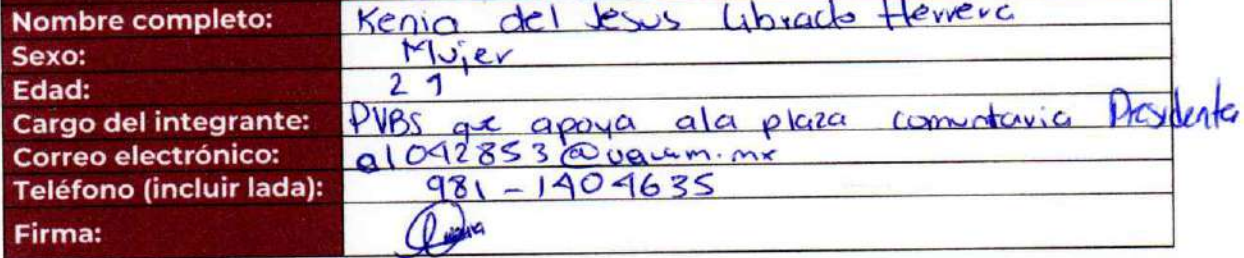 Nombre completo: Kenia del Jesus Librado Herrera
Sexo: Mujer
Edad: 21
Cargo del integrante: PVBS que apoya ala plaza comuntaria Presidenta
Correo electrónico: al042853@uacam.mx
Teléfono (incluir lada): 981-1404635
Firma: